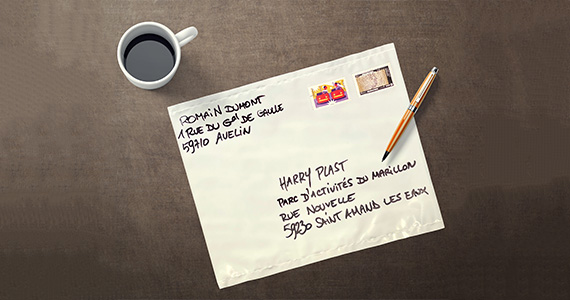 ROMAIN DUMONT
1 RUE DU Gal DE GAULLE
59710 AVELIN
HARRY PLAST
PARC D'ACTIVITÉS DU MARILLON
RUE NOUVELLE
59230 SAINT AMAND LES EAUX